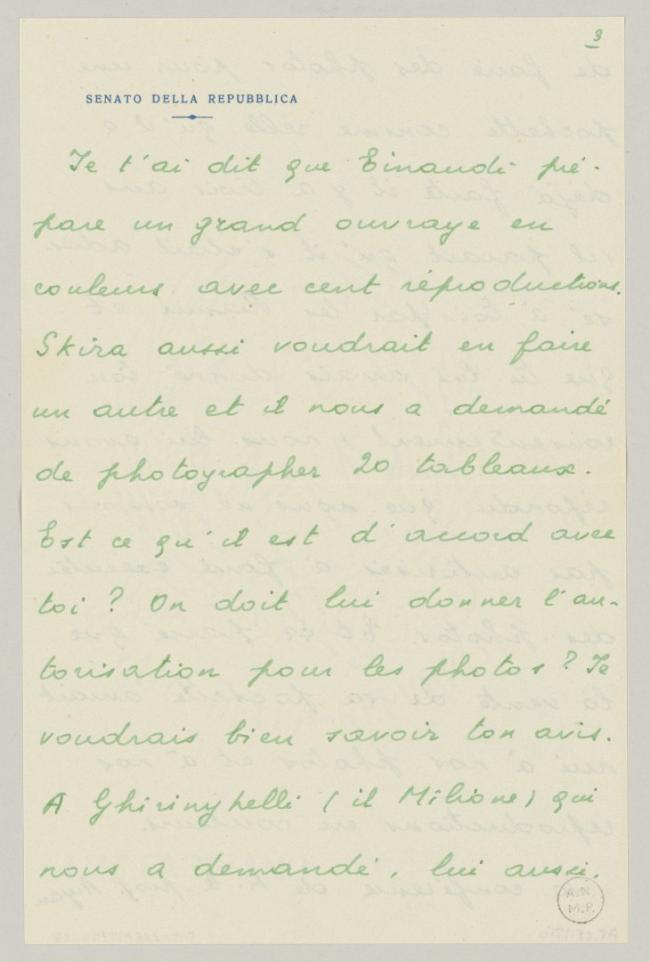 3
SENATO DELLA REPUBBLICA
Je t'ai dit que Einaudi pré-
pare un grand ouvrage en
couleurs avec cent réproductions.
Skira aussi voudrait en faire
un autre et il nous a demandé
de photographer 20 tableaux.
Est ce qu'il est d'accord avec
toi? On doit lui donner l'au-
torisation pour les photos? Je
voudrais bien savoir ton avis.
A Ghiringhelli (il Milione) qui
nous a demandé, lui aussi,
A.N.
M.P.